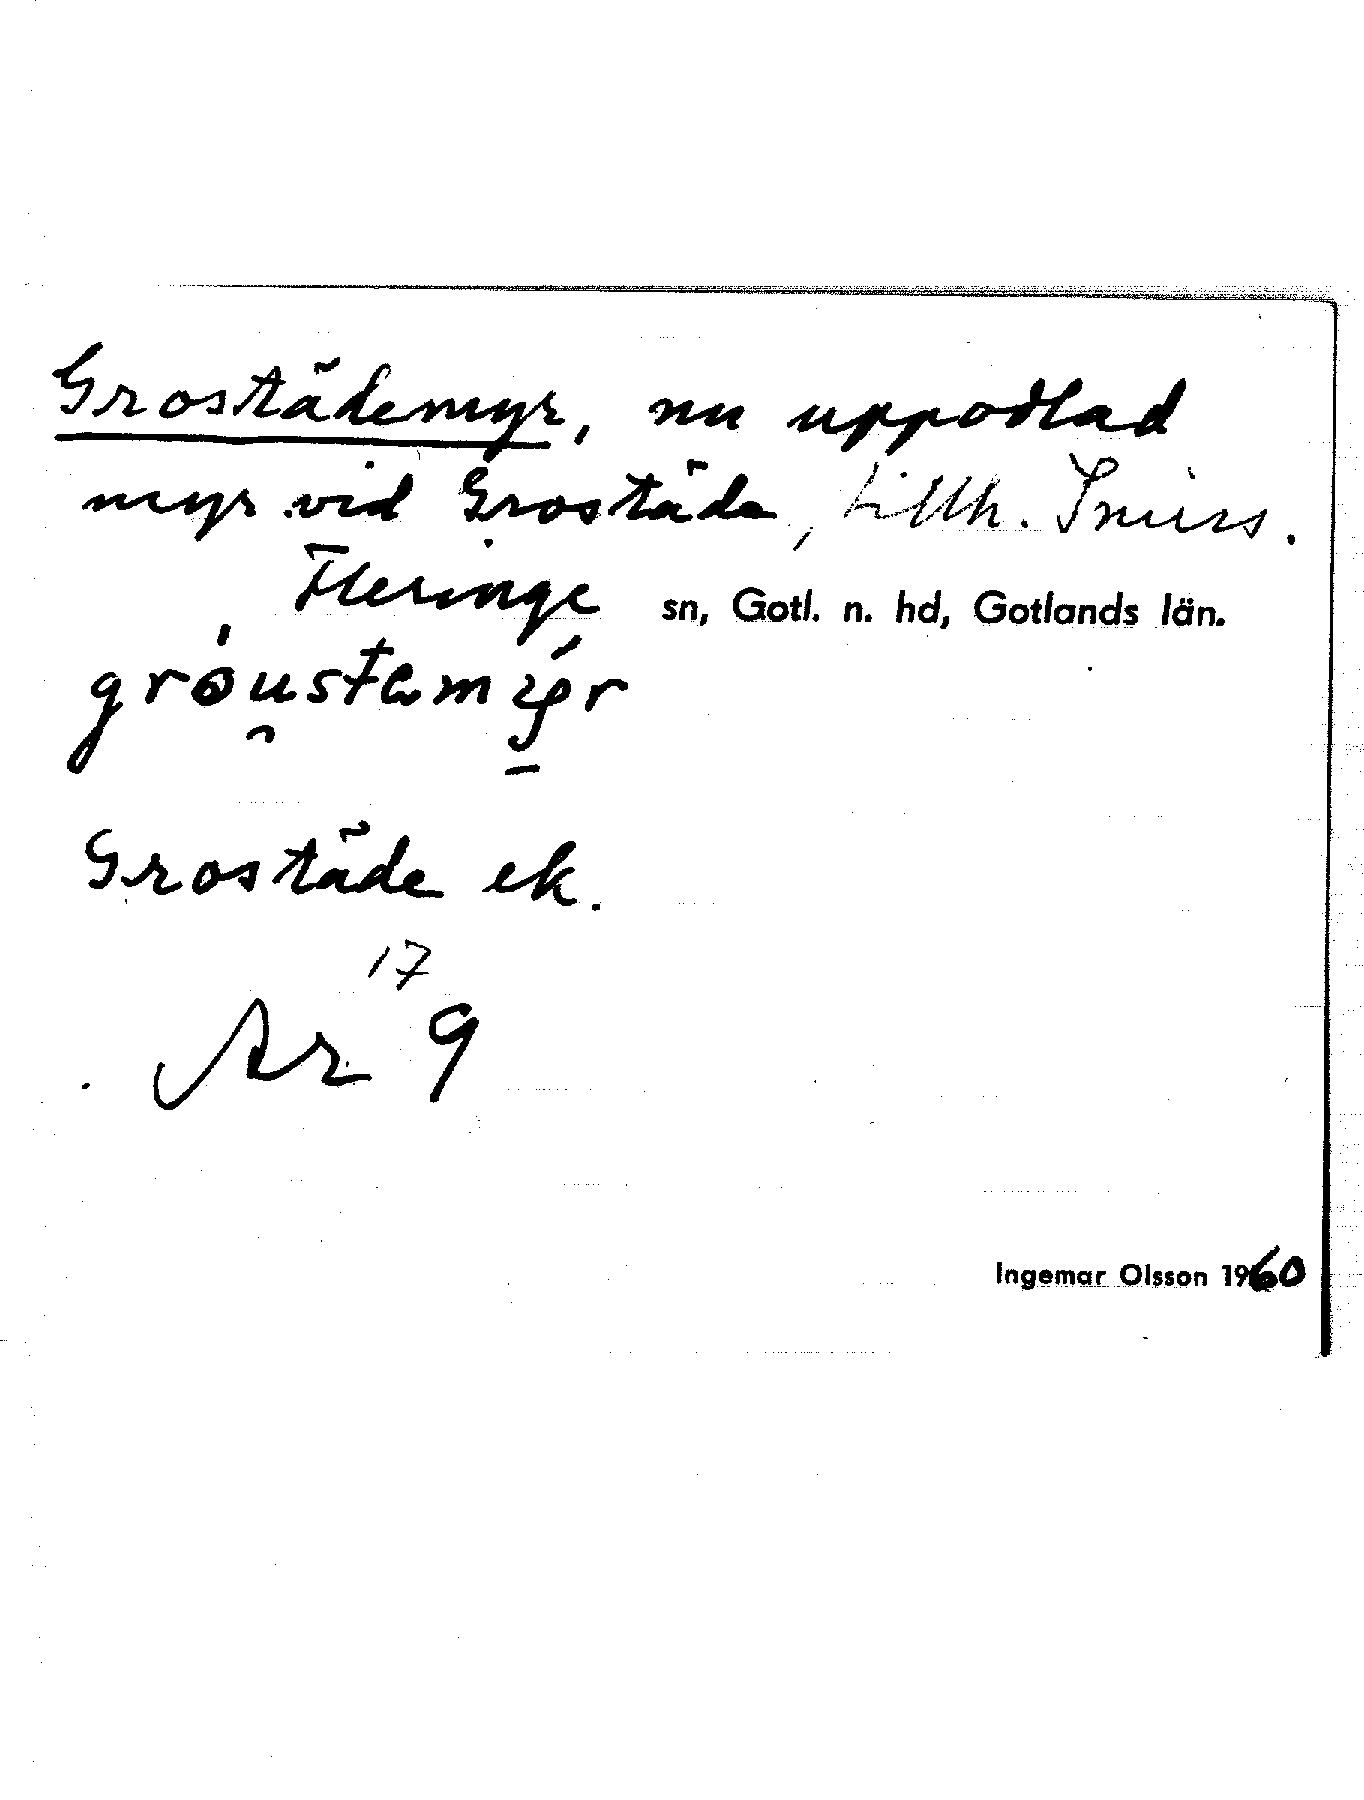 Groståđemyr, nu uppodlad
myr vid Grostäde, tillh. Snurs.
Fleringe sn, Gotl. n. hd, Gotlands län.
Grostäde ek.
17
Ar 9
Ingemar Olsson 1960